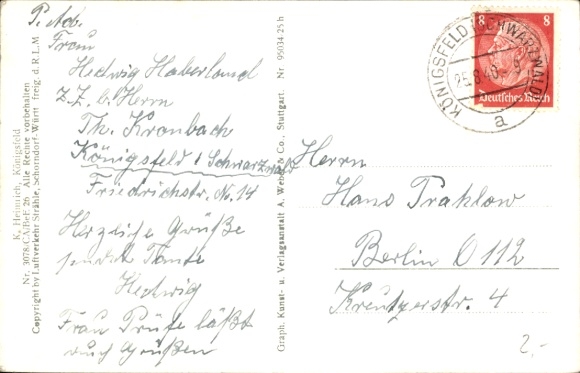 P. Ab.
Frau
Hedwig Haberland
z. Z. b. Herrn
Th. Kronbach
Königsfeld / Schwarzwald
Friedrichstr. No. 14
Herzliche Grüße
sendet Tante
Hedwig
Frau Prüfe läßt
auch Grüßen
K. Heinrich, Königsfeld
Nr. 9078/CA/BeF 26 Alle Rechte vorbehalten
Copyright by Luftverkehr Strähle, Schorndorf-Württ. freig. d. R.L.M.
Graph. Kunst- u. Verlagsanstalt A. Weber & Co., Stuttgart. Nr 95034 25 h
8 8
Deutsches Reich
KÖNIGSFELD (SCHWARZWALD)
25.8.40
a
Herrn
Hans Trahlow
Berlin O 112
Kreutzerstr. 4
2,-